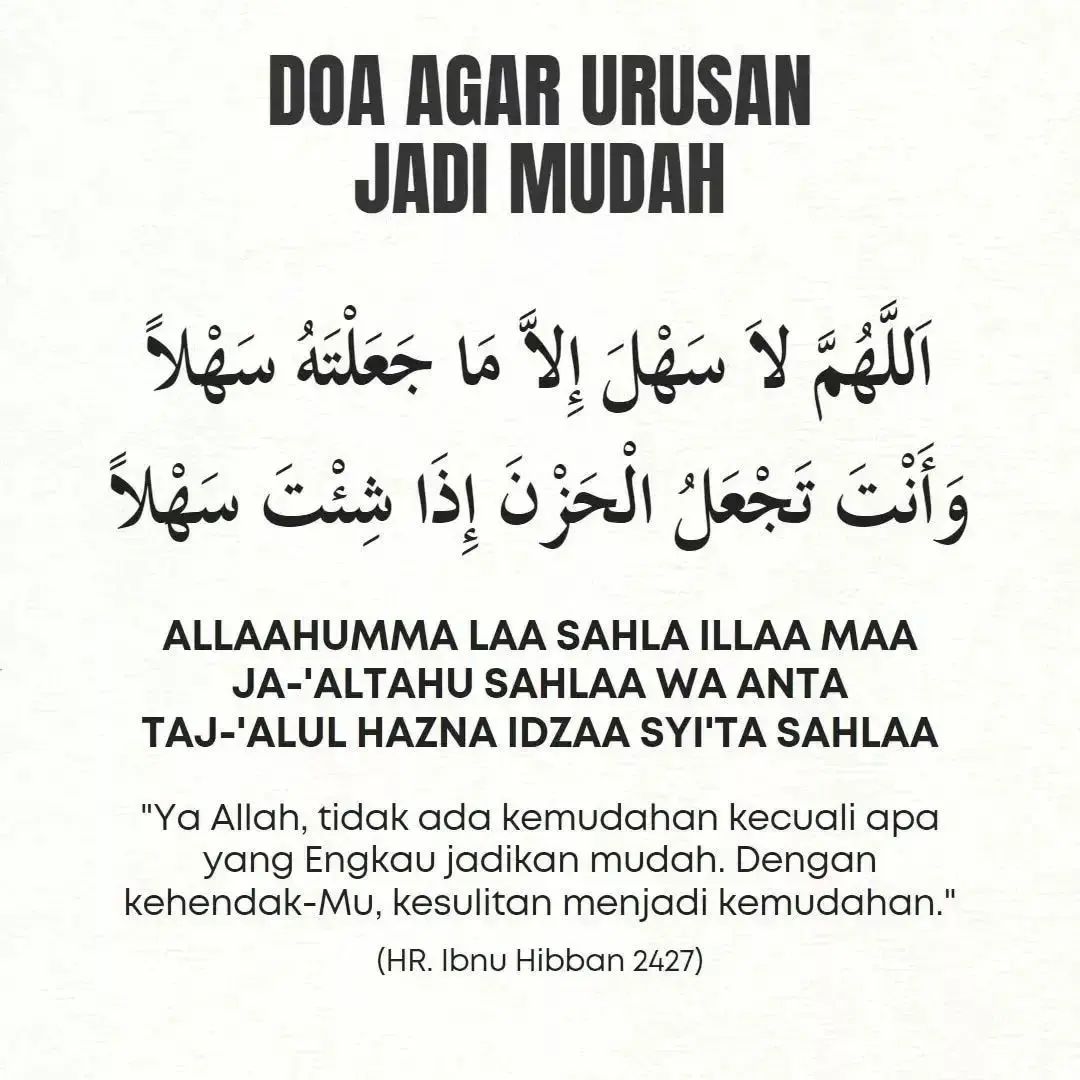 DOA AGAR URUSAN
JADI MUDAH
اَللَّهُمَّ لاَ سَهْلَ إِلاَّ مَا جَعَلْتَهُ سَهْلاً
وَأَنْتَ تَجْعَلُ الْحَزْنَ إِذَا شِئْتَ سَهْلاً
ALLAAHUMMA LAA SAHLA ILLAA MAA
JA-'ALTAHU SAHLAA WA ANTA
TAJ-'ALUL HAZNA IDZAA SYI'TA SAHLAA
"Ya Allah, tidak ada kemudahan kecuali apa
yang Engkau jadikan mudah. Dengan
kehendak-Mu, kesulitan menjadi kemudahan."
(HR. Ibnu Hibban 2427)